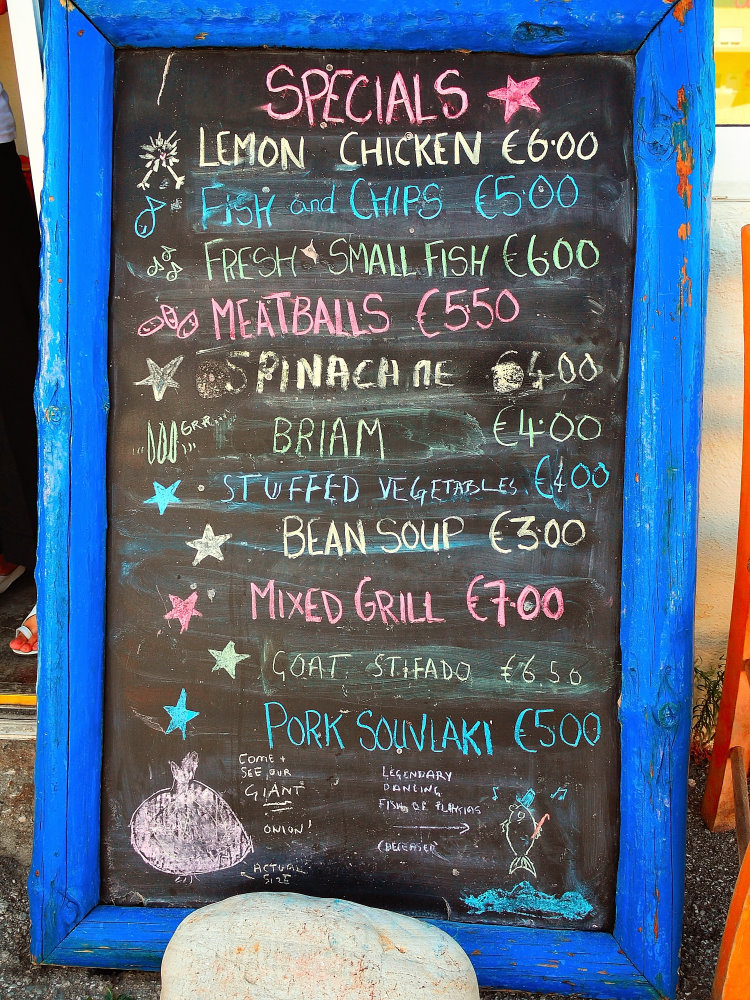 SPECIALS
LEMON CHICKEN €6.00
FISH and CHIPS €5.00
FRESH SMALL FISH €6.00
MEATBALLS €5.50
SPINACH PIE €4.00
GRR...
BRIAM €4.00
STUFFED VEGETABLES €4.00
BEAN SOUP €3.00
MIXED GRILL €7.00
GOAT STIFADO €6.50
PORK SOUVLAKI €5.00
COME +
SEE OUR
GIANT
ONION!
ACTUAL
SIZE
LEGENDARY
DANCING
FISH OF
(DECEASED